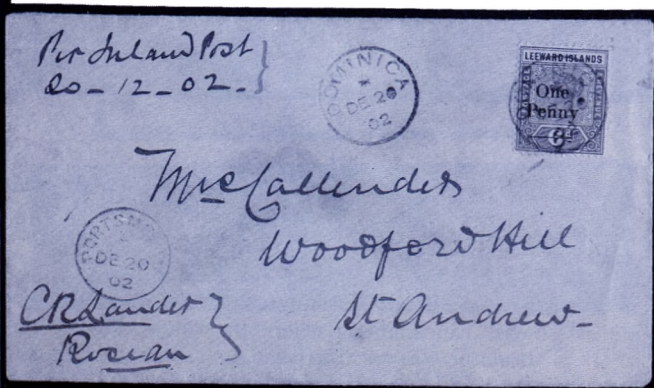 Per Inland Post
20-12-02-
DOMINICA
DE 20
02
LEEWARD ISLANDS
One
Penny
6d
Mrs Callender
Woodford Hill
St Andrew-
PORTSM
DE 20
02
C R Lander
Roseau